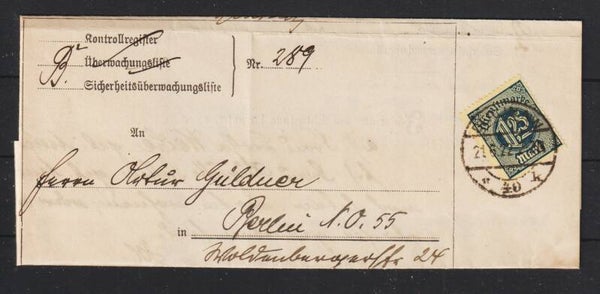 Kontrollregister
Überwachungsliste
Sicherheitsüberwachungsliste
Nr. 289
An
Herrn Artur Güldner
in Berlin N.O. 55
Woldenbergerstr 24
1,25
Mark
40 k